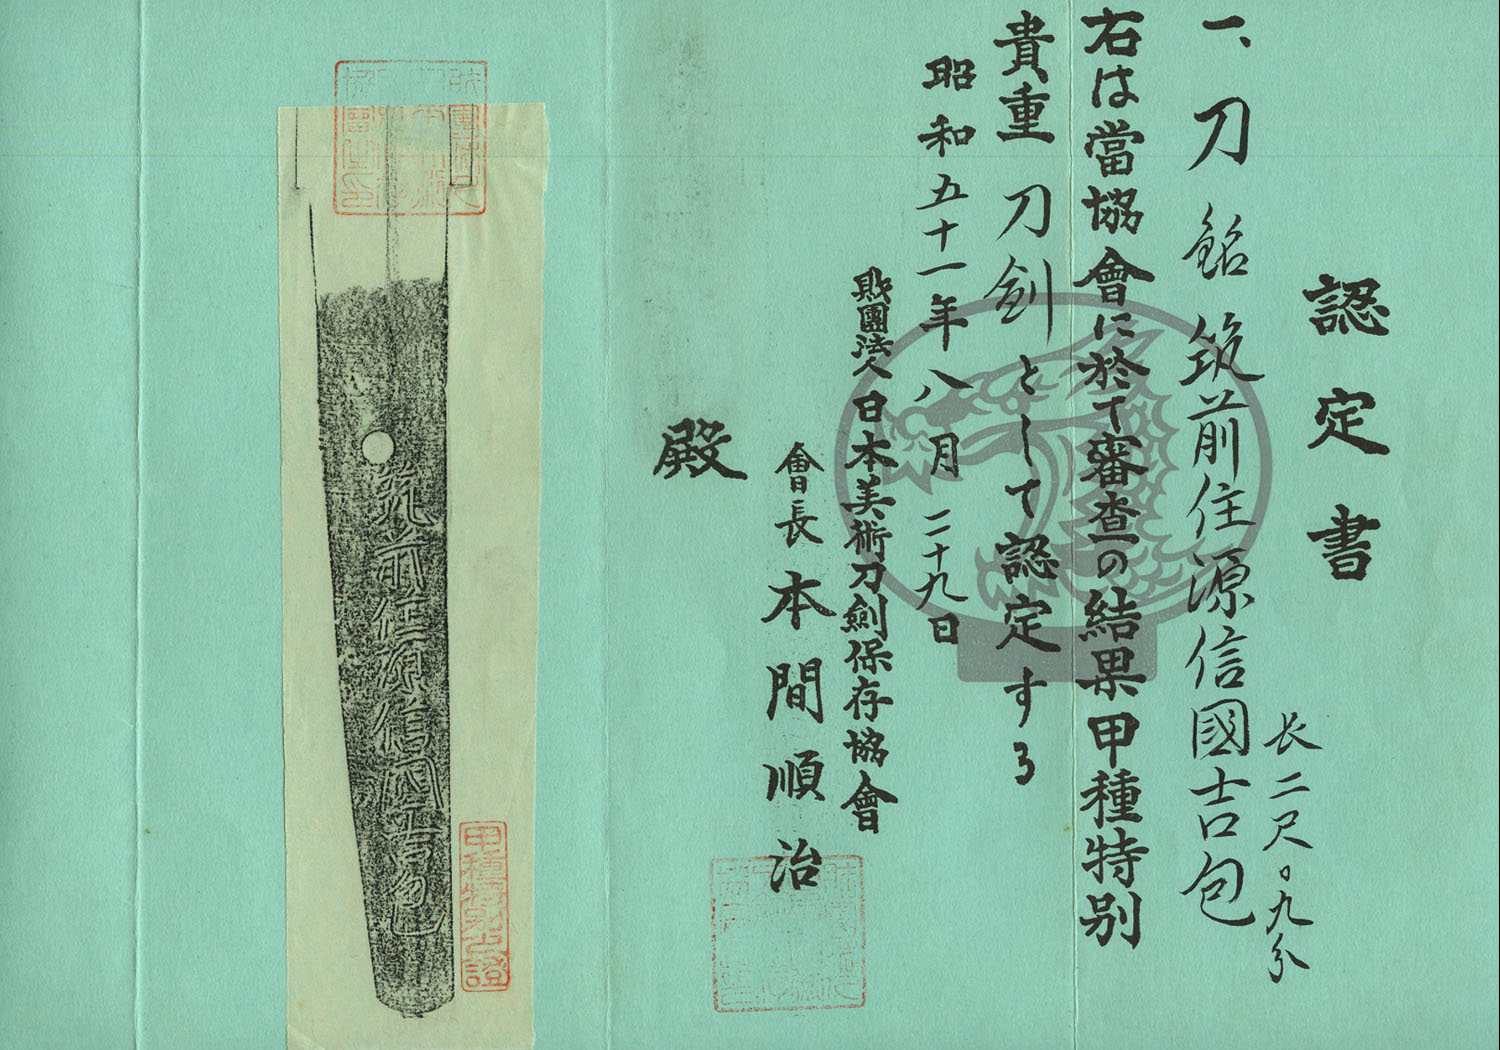 認定書
一、刀 銘 筑前住源信國吉包
長二尺〇九分
右は當協會に於て審査の結果甲種特別
貴重刀剣として認定する
昭和五十一年八月二十九日
財團法人日本美術刀劍保存協會
會長 本間順治
殿
筑前住源信国吉包
甲種特別之證